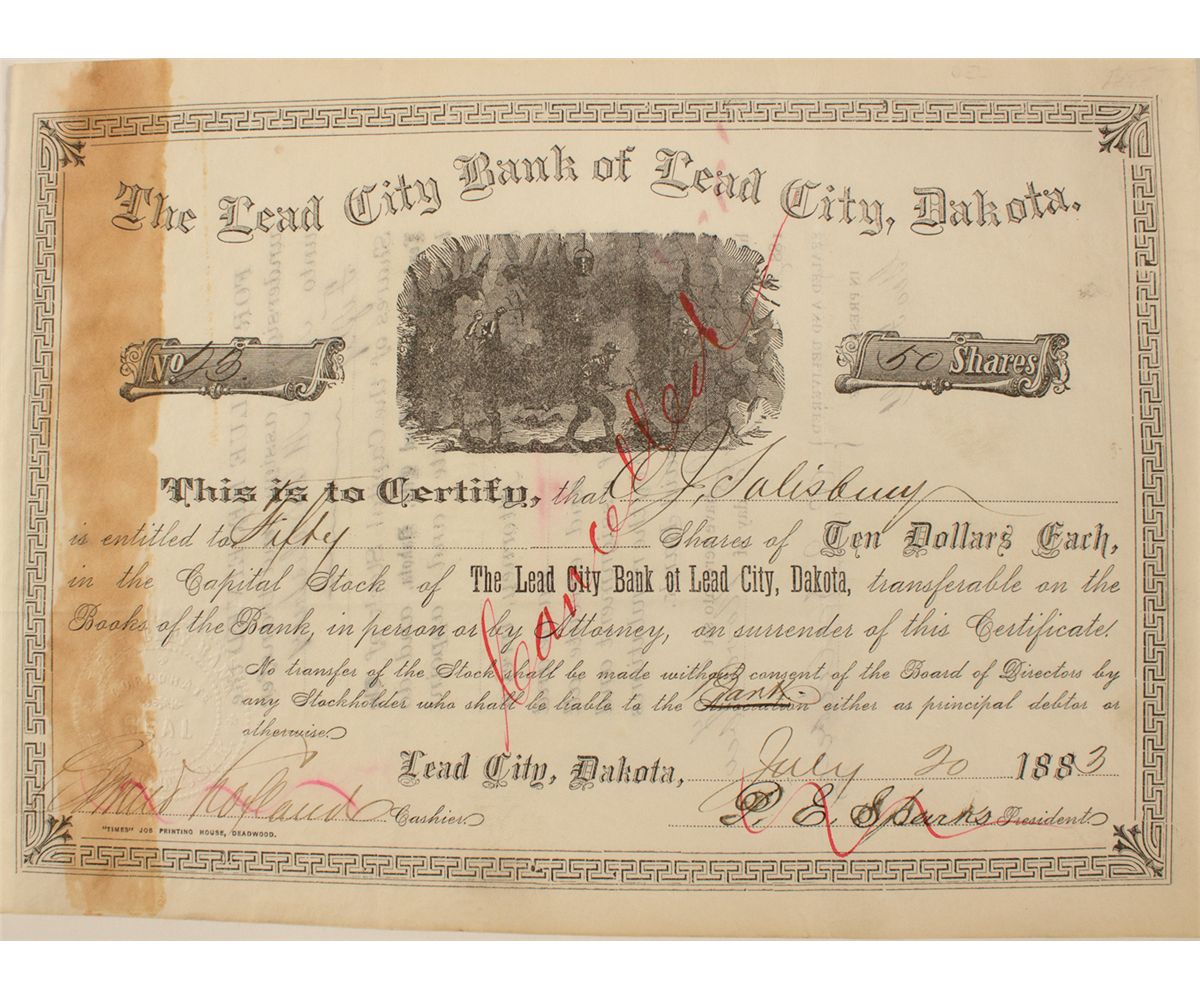 The Lead City Bank of Lead City, Dakota.
No 13.
50 Shares
This is to Certify, that O. J. Salisbury
is entitled to Fifty Shares of Ten Dollars Each,
in the Capital Stock of The Lead City Bank ot Lead City, Dakota, transferable on the
Books of the Bank, in person or by Attorney, on surrender of this Certificate.
No transfer of the Stock shall be made without consent of the Board of Directors by
Bank
any Stockholder who shall be liable to the Association either as principal debtor or
otherwise.
Cancelled
SEAL
Lead City, Dakota, July 20 1883
Holland Cashier.
P. E. Sparks President
"TIMES" JOB PRINTING HOUSE, DEADWOOD.